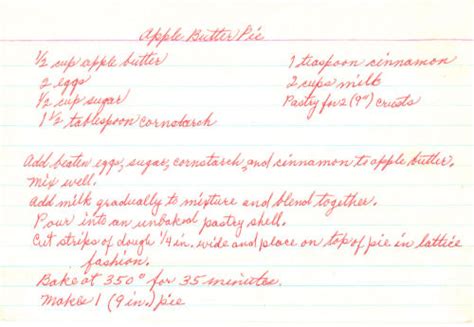 Apple Butter Pie
½ cup apple butter
1 teaspoon cinnamon
2 eggs
2 cups milk
½ cup sugar
Pastry for 2 (9") crusts
1 ½ tablespoon cornstarch
Add beaten eggs, sugar, cornstarch, and cinnamon to apple butter.
Mix well.
Add milk gradually to mixture and blend together.
Pour into an unbaked pastry shell.
Cut strips of dough ¼ in. wide and place on top of pie in lattice
fashion.
Bake at 350° for 35 minutes.
Makes 1 (9 in.) pie